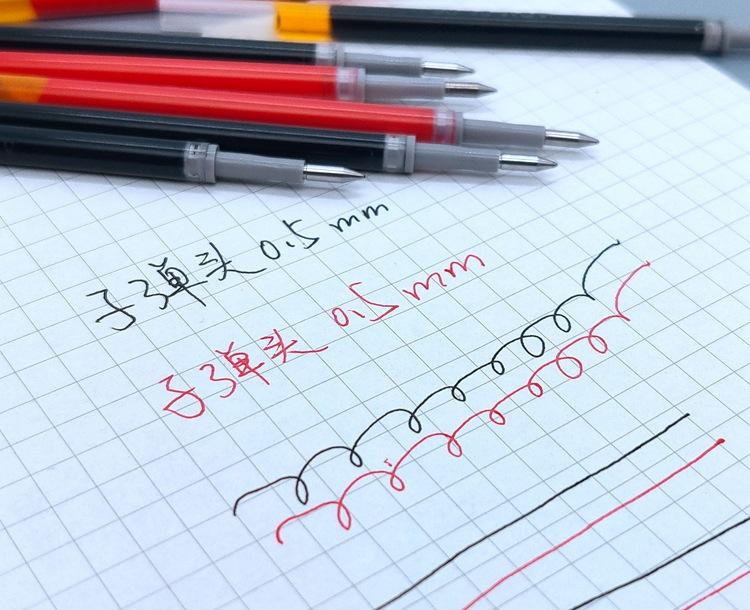 子弹头 0.5 mm
子弹头 0.5 mm